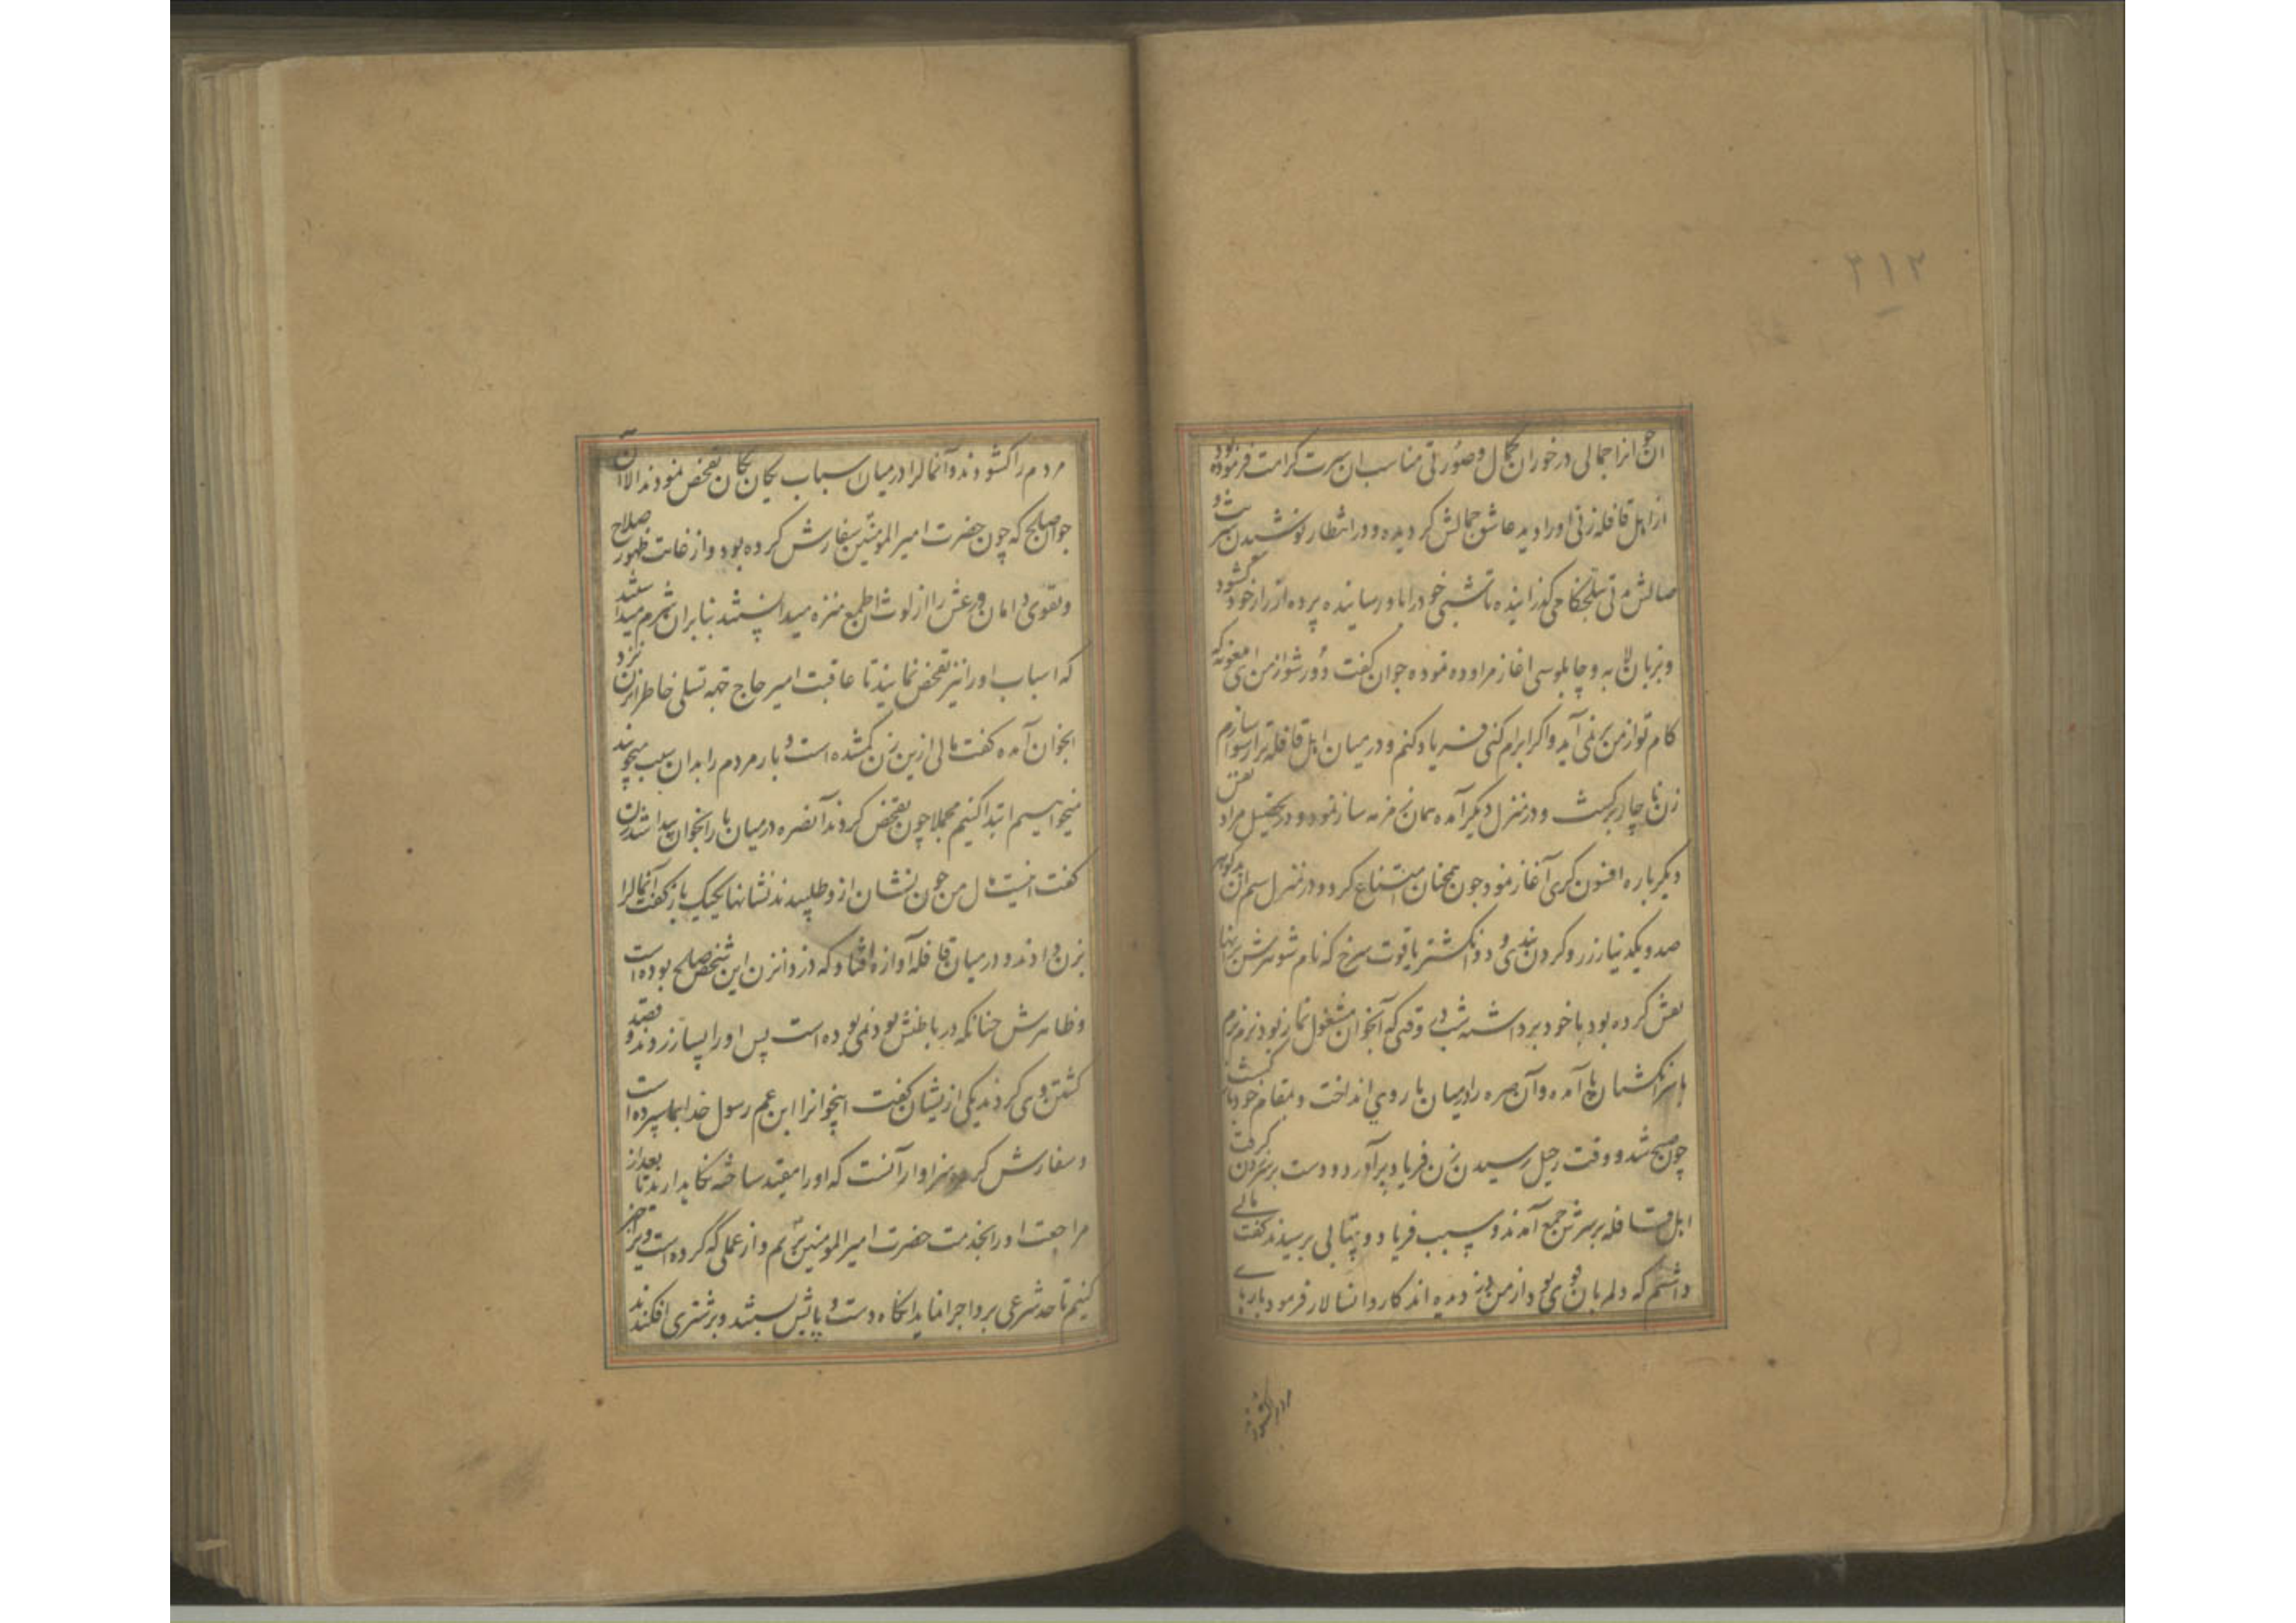 ۲۱۲
جوان را جمالی در خور آن کمال و صورتی مناسب ان سیرت کرامت فرموده بود
از اهل قافله زنی او را دیده عاشق جمالش کردیده و در انتظار نوشیدن شربت
وصالش بتلخکامی کذرانیده تا شبی خود را باو رسانیده پرده آزرم از خود کشود
و بزبان لابه و چاپلوسی اغاز مراوده نموده جوان کفت دور شو از من ای ملعونه که
کام تو از من بر نمی آید و اکر ابرام کنی فریاد کنم و در میان اهل قافله ترا رسوا سازم
زن ناچار برکشت و در منزل دیکر آمده همان زمزمه ساز نموده و در تحصیل مراد نفس
دیکر باره افسون کری آغاز نمود چون همچنان امتناع کرد و در منزل سیم ان
صد و یکدینار زر و کردن بندی و دو انکشتر یاقوت سرخ که نام شوهرش بر آنها
نقش کرده بود با خود برداشته شب در وقتی که آنجوان مشغول نماز بود نرم نرم
با سر انکشتان پا آمده و آن صره را در میان بار وی انداخت و بمقام خود باز کشت
چون صبح شد و وقت رحیل رسید آن زن فریاد برآورد و دست بر سر زدن کرفت
اهل قافله بر سرش جمع آمدند و سبب فریاد و بیتابی پرسیدند کفت مالی
داشتم که دلم بان قوی بود از من دزدیده اند کاروانسالار فرمود بارهای
مردم را کشودند
مردم را کشودند و آنمال را در میان اسباب یکان یکان تفحص نمودند الا آن
جوان صالح که چون حضرت امیر المومنین سفارش کرده بود و از غایت ظهور صلاح
و تقوی دامان ورعش را از لوث طمع منزه میدانستند بنابران شرم میداشتند
که اسباب او را نیز تفحص نمایند تا عاقبت امیر حاج جهة تسلی خاطر ان زن نزد
انجوان آمده کفت مالی ازین زن کم شده است و بار مردم را بدان سبب میجویند
میخواهیم ابتدا کنیم مجملا چون تفحص کردند آنصره در میان بار انجوان پیدا شد زن
کفت اینست مال من چون نشان ازو طلبیدند نشانها یکیک باز کفت آنمال را
بزن دادند و در میان قافله آوازه افتاد که دزد انزن این شخص صالح بوده است
و ظاهرش چنانکه در باطنش بود نمی بوده است پس او را بسیار زدند و قصد
کشتن وی کردند یکی ازیشان کفت اینجوانرا ابن عم رسول خدا بما سپرده است
و سفارش کرده سزاوار آنست که او را مقید ساخته نکاه داریم تا بعد از
مراجعت او را بخدمت حضرت امیر المومنین بریم و از عملی که کرده است ویرا خبر
کنیم تا حد شرعی برو اجرا نماید انکاه دست و پایش بستند و بر شتری افکندند